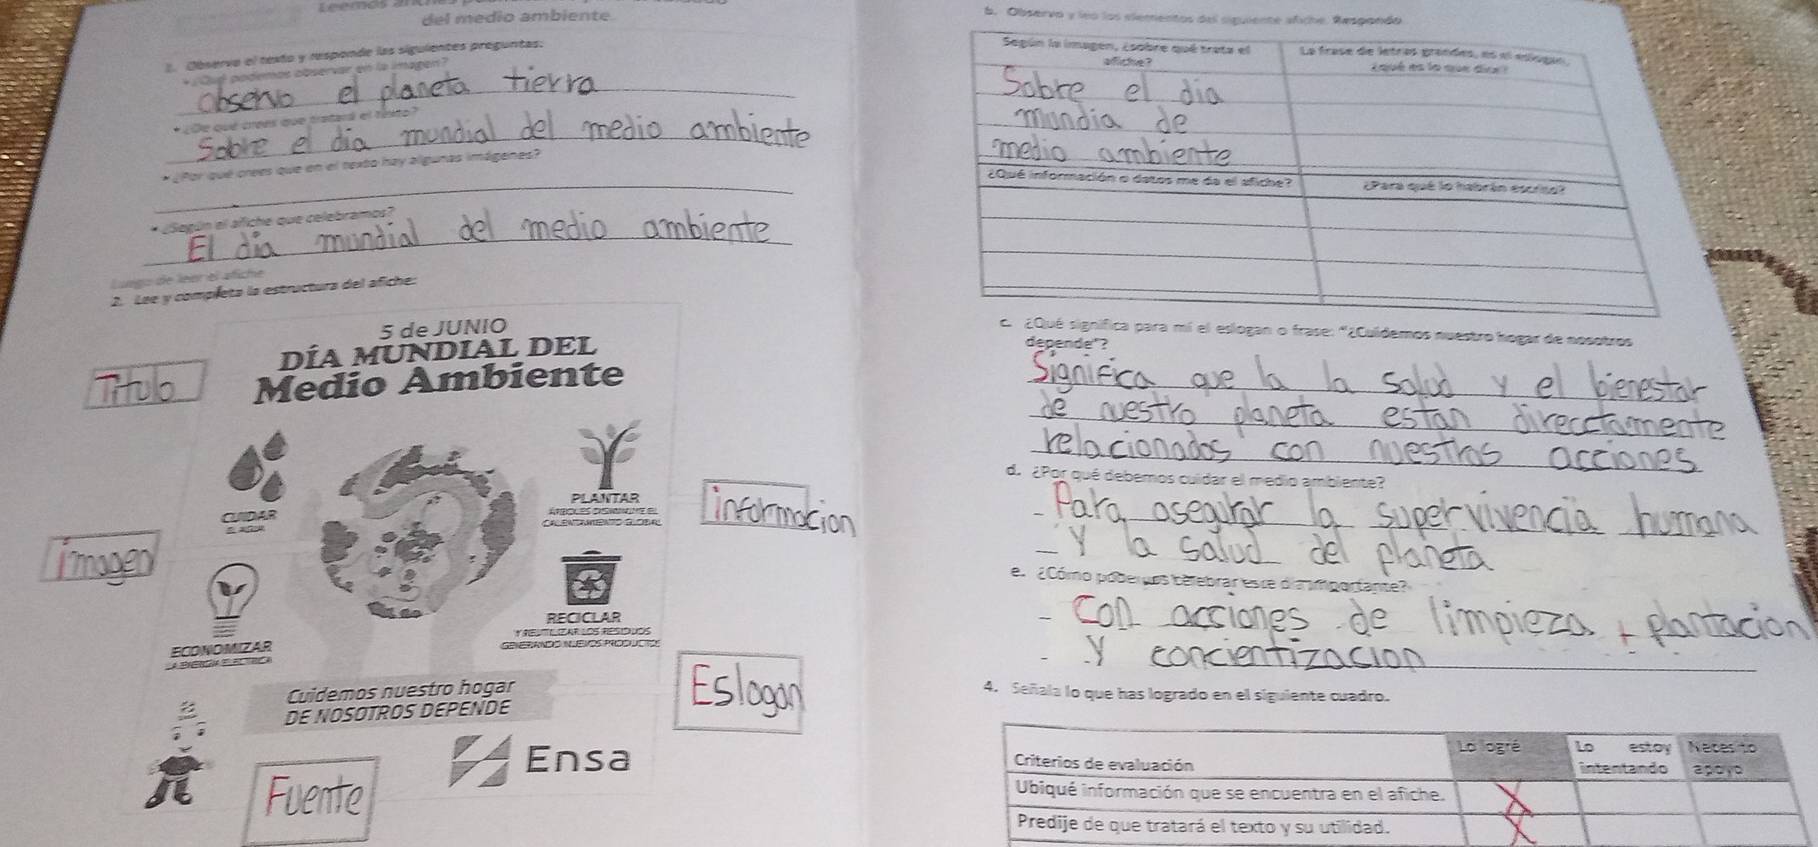 del medio ambiente
1. Observo el texto y responde las siguientes preguntas:
• ¿Qué podemos observar en la imagen?
observo el planeta tierra
• ¿De qué crees que tratará el texto?
Sobre el día mundial del medio ambiente
• ¿Por qué crees que en el texto hay algunas imágenes?
• ¿Según el afiche que celebramos?
El día mundial del medio ambiente
Luego de leer el afiche
2. Lee y completa la estructura del afiche:
5 de JUNIO
DÍA MUNDIAL DEL
Medio Ambiente
Título
CUIDAR
EL AGUA
PLANTAR
ÁRBOLES DISMINUYE EL
CALENTAMIENTO GLOBAL
informacion
imagen
ECONOMIZAR
LA ENERGÍA ELÉCTRICA
RECICLAR
Y REUTILIZAR LOS RESIDUOS
GENERANDO NUEVOS PRODUCTOS
Cuidemos nuestro hogar
DE NOSOTROS DEPENDE
Eslogan
Ensa
Fuente
b. Observo y leo los elementos del siguiente afiche. Respondo
Según la imagen, ¿sobre qué trata el afiche?
La frase de letras grandes, es el eslogan, ¿qué es lo que dice?
Sobre el dia
mundia de
medio ambiente
¿Qué información o datos me da el afiche?
¿Para qué lo habrán escrito?
c. ¿Qué significa para mí el eslogan o frase: "¿Cuidemos nuestro hogar de nosotros
depende"?
Significa que la la salud y el bienestar
de nuestro planeta estan direcctamente
relacionados con nuestras acciones
d. ¿Por qué debemos cuidar el medio ambiente?
- Para asegurar la supervivencia humana
- Y la salud del planeta
e. ¿Cómo podemos celebrar este día importante?
- Con acciones de limpieza + plantacion
- .Y concientizacion
4. Señala lo que has logrado en el siguiente cuadro.
Criterios de evaluación
Lo logré
Lo estoy intentando
Necesito apoyo
Ubiqué información que se encuentra en el afiche.
X
Predije de que tratará el texto y su utilidad.
X